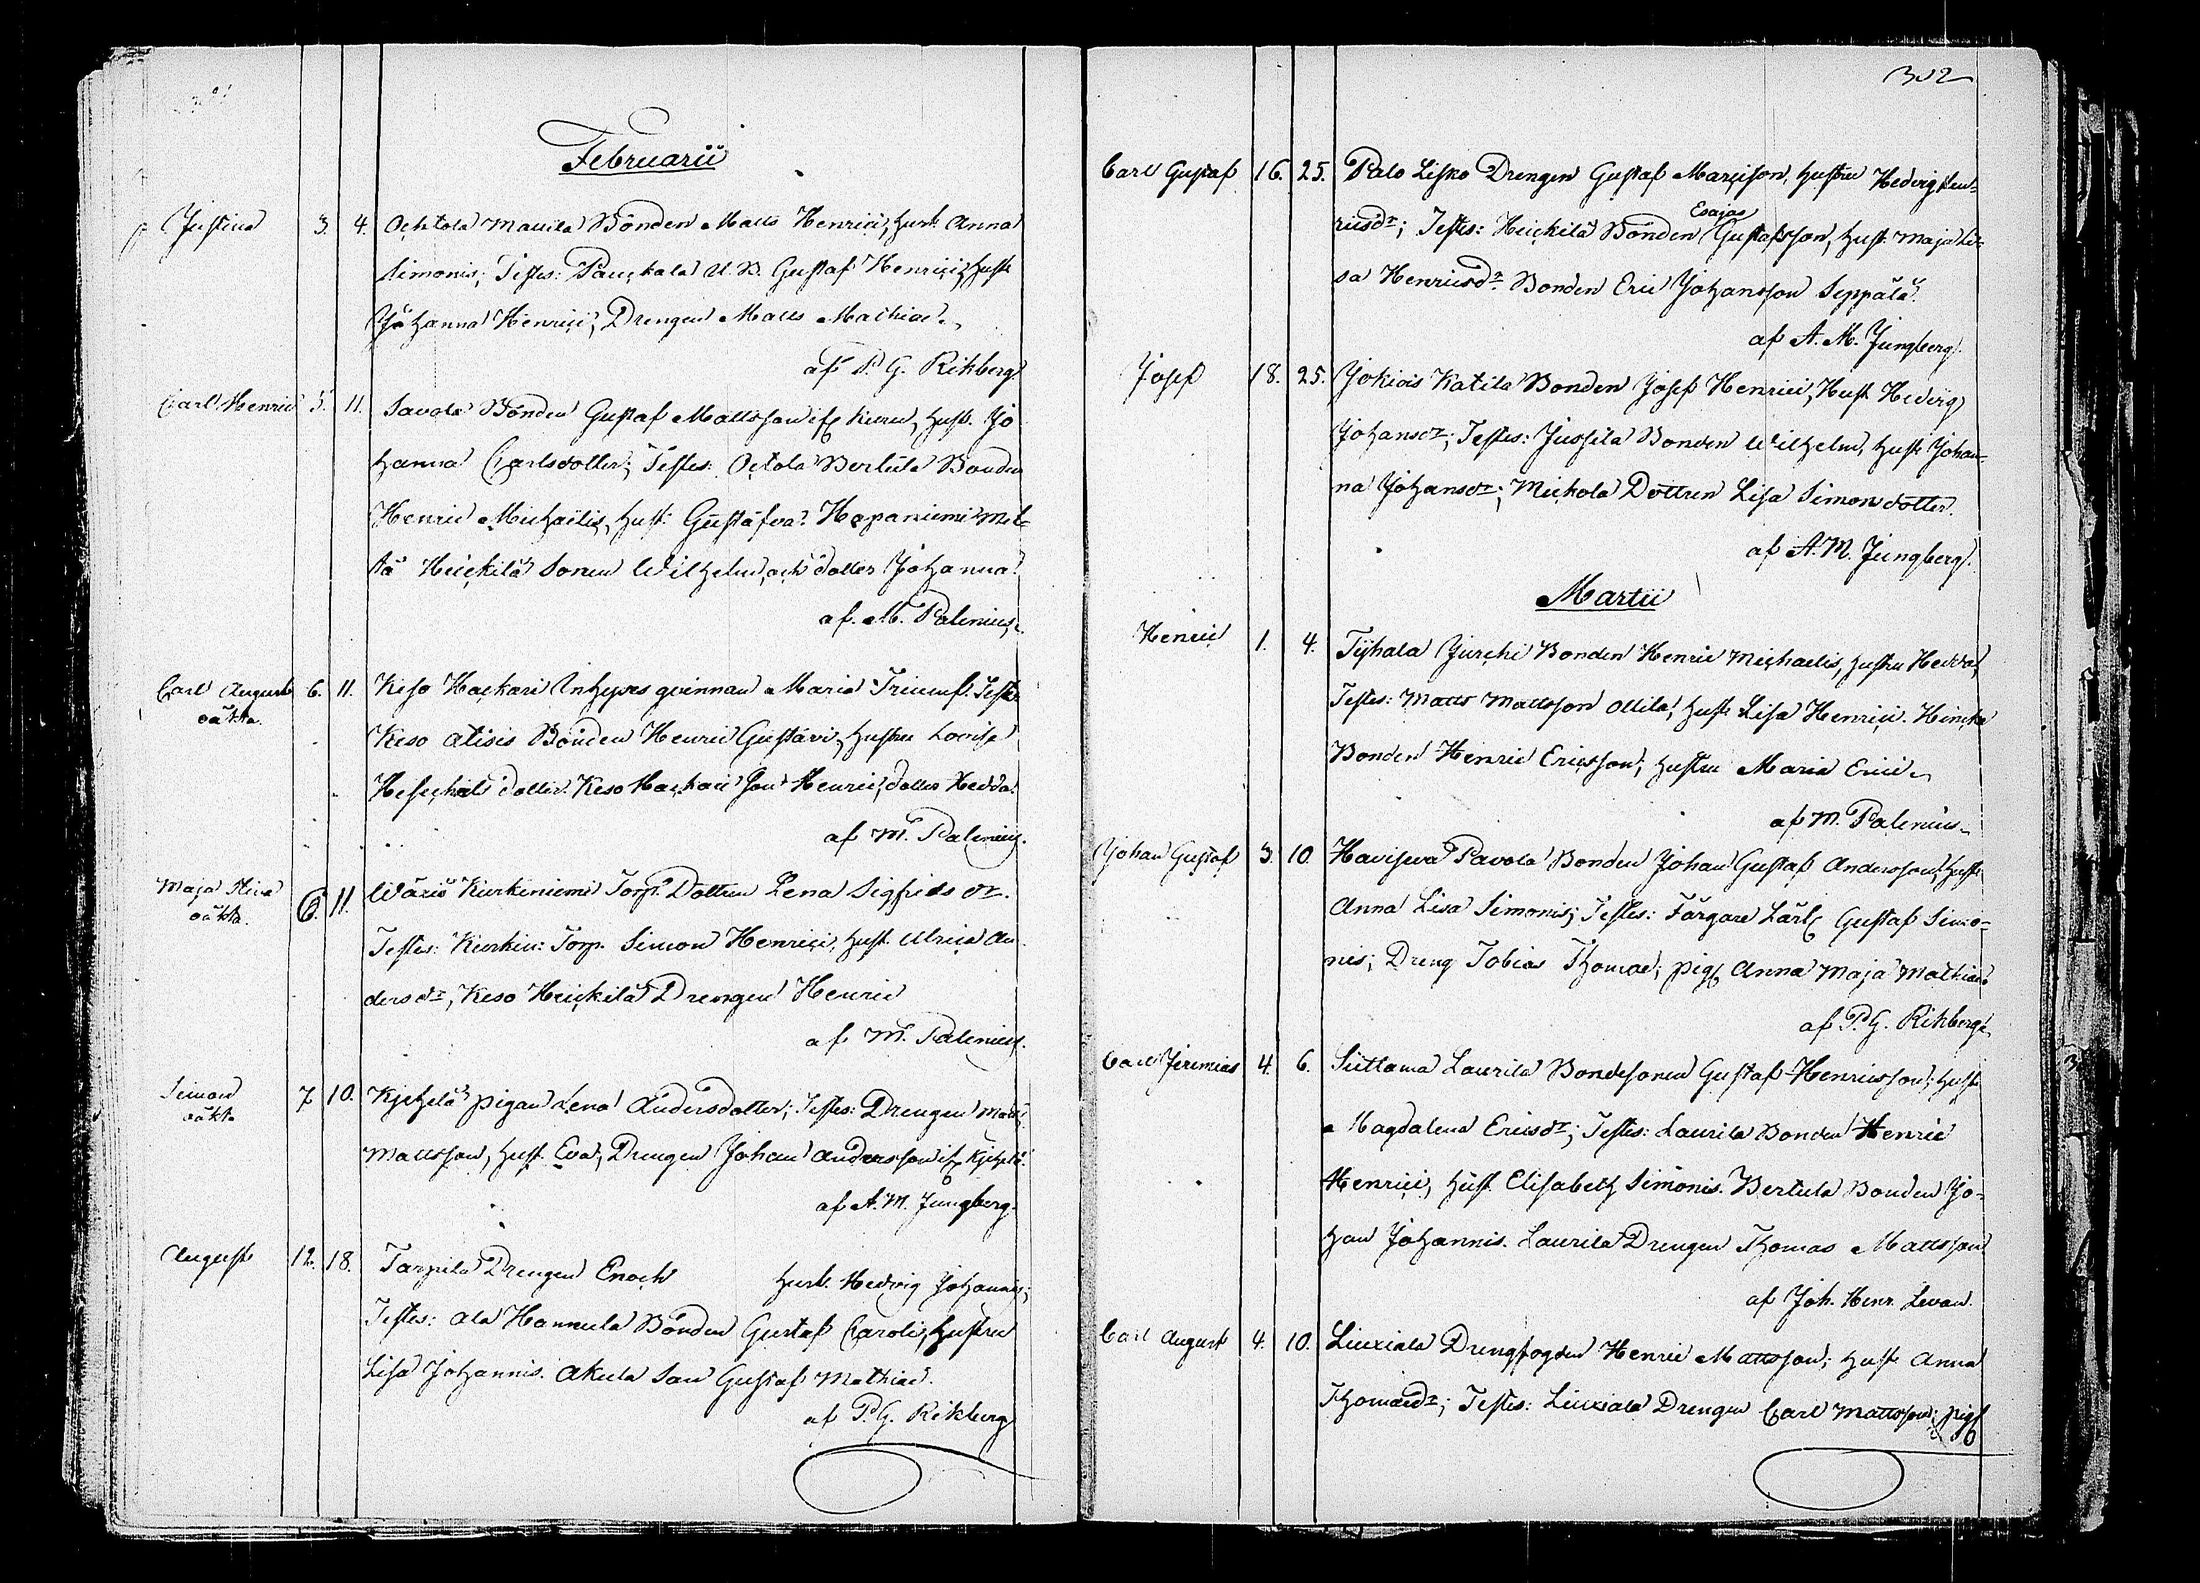 Februarii
Justina 3. 4. Ochtola Mauila Bonden Matts Henrici, Hust. Anna
Simonis; Testes: Pauckala U. B. Gustaf Henrici, Hustr
Johanna Henrici, Drengen Matts Mathiae.
af P. G. Rikberg.
Carl Henric 5. 11. Savola Bonden Gustaf Mattsson, Hust. Jo
hanna Carlsdotter; Testes: Octola Bertula Bonden
Henric Michaelis, Hust. Gustafva. Hapaniemi
Heickilä Sonen Wilhelm, och dotter Johanna.
af. M. Palenius.
Carl August 6. 11. Keso Hackari Inhyses qvinnan Maria Triumf. Testes
oäkta.
Keso Atisis Bonden Henric Gustavi, Hustru Lovisa
dotter. Keso Hackari Son Henric, dotter Hedda.
af M. Palenius.
Maja Stina 6. 11. Wäräs Kurkiniemi Torp. Dottren Lena Sigfrids dr.
oäkta.
Testes: Kurkin: Torp. Simon Henrici, Hust. Ulrica An
dersdr, Keso Heickilä Drengen Henric
af M. Palenius.
Simon 7. 10. Kjehelä pigan Lena Andersdotter; Testes: Drengen Matts
oäkta
Mattsson, Hust. Eva, Drengen Johan Andersson
af A. M. Jungberg.
August 12. 18. Tarpila Drengen Enoch Hust. Hedvig Johannis;
Testes: Ala Hannula Bonden Gustaf Caroli, Hustru
Lisa Johannis. Akula Son Gustaf Mathiae.
af P. G. Rikberg
302
Carl Gustaf 16. 25. Palo Lisko Drengen Gustaf Marcisson, Hustru Hedvig Hen-
Esajas
ricsdr; Testes: Heickilä Bonden Gustafsson, Hust. Maja Li-
sa Henricsdr. Bonden Eric Johansson Seppälä.
af A. M. Jungberg.
Josef 18. 25. Jokiois Katila Bonden Josef Henrici, Hust Hedvig
Johansdr; Testes: Jussila Bonden Wilhelm, Hust Johan-
na Johansdr; Mickola Dottren Lisa Simonsdotter.
af A. M. Jungberg.
Martii
Henric 1. 4. Tyhala Yurchi Bonden Henric Michaelis, Hustru Hedda,
Testes: Matts Mattsson Ollila, Hust Lisa Henrici. Hincka
Bonden Henric Ericsson, Hustru Maria Erici.
af M. Palenius.
Johan Gustaf 3. 10. Haviseva Pavola Bonden Johan Gustaf Andersson, Hustr
Anna Lisa Simonis; Testes: Färgare Lärl. Gustaf Simo-
nis; Dreng Tobias Thomae; pig. Anna Maja Mathiae.
af P. G. Rikberg.
Carl Jeremias 4. 6. Suttama Laurila Bondesonen Gustaf Henricsson; Hustr
Magdalena Ericsdr; Testes: Laurila Bonden Henric
Henrici, Hust. Elisabeth Simonis. Bertula Bonden Jo-
han Johannis. Laurila Drengen Thomas Mattsson
af Joh. Henr. Levan.
Carl August 4. 10. Liuxiala Drengfogden Henric Mattsson; Hust Anna
Thomaedr; Testes: Liuxiala Drengen Carl Mattsson; pig.